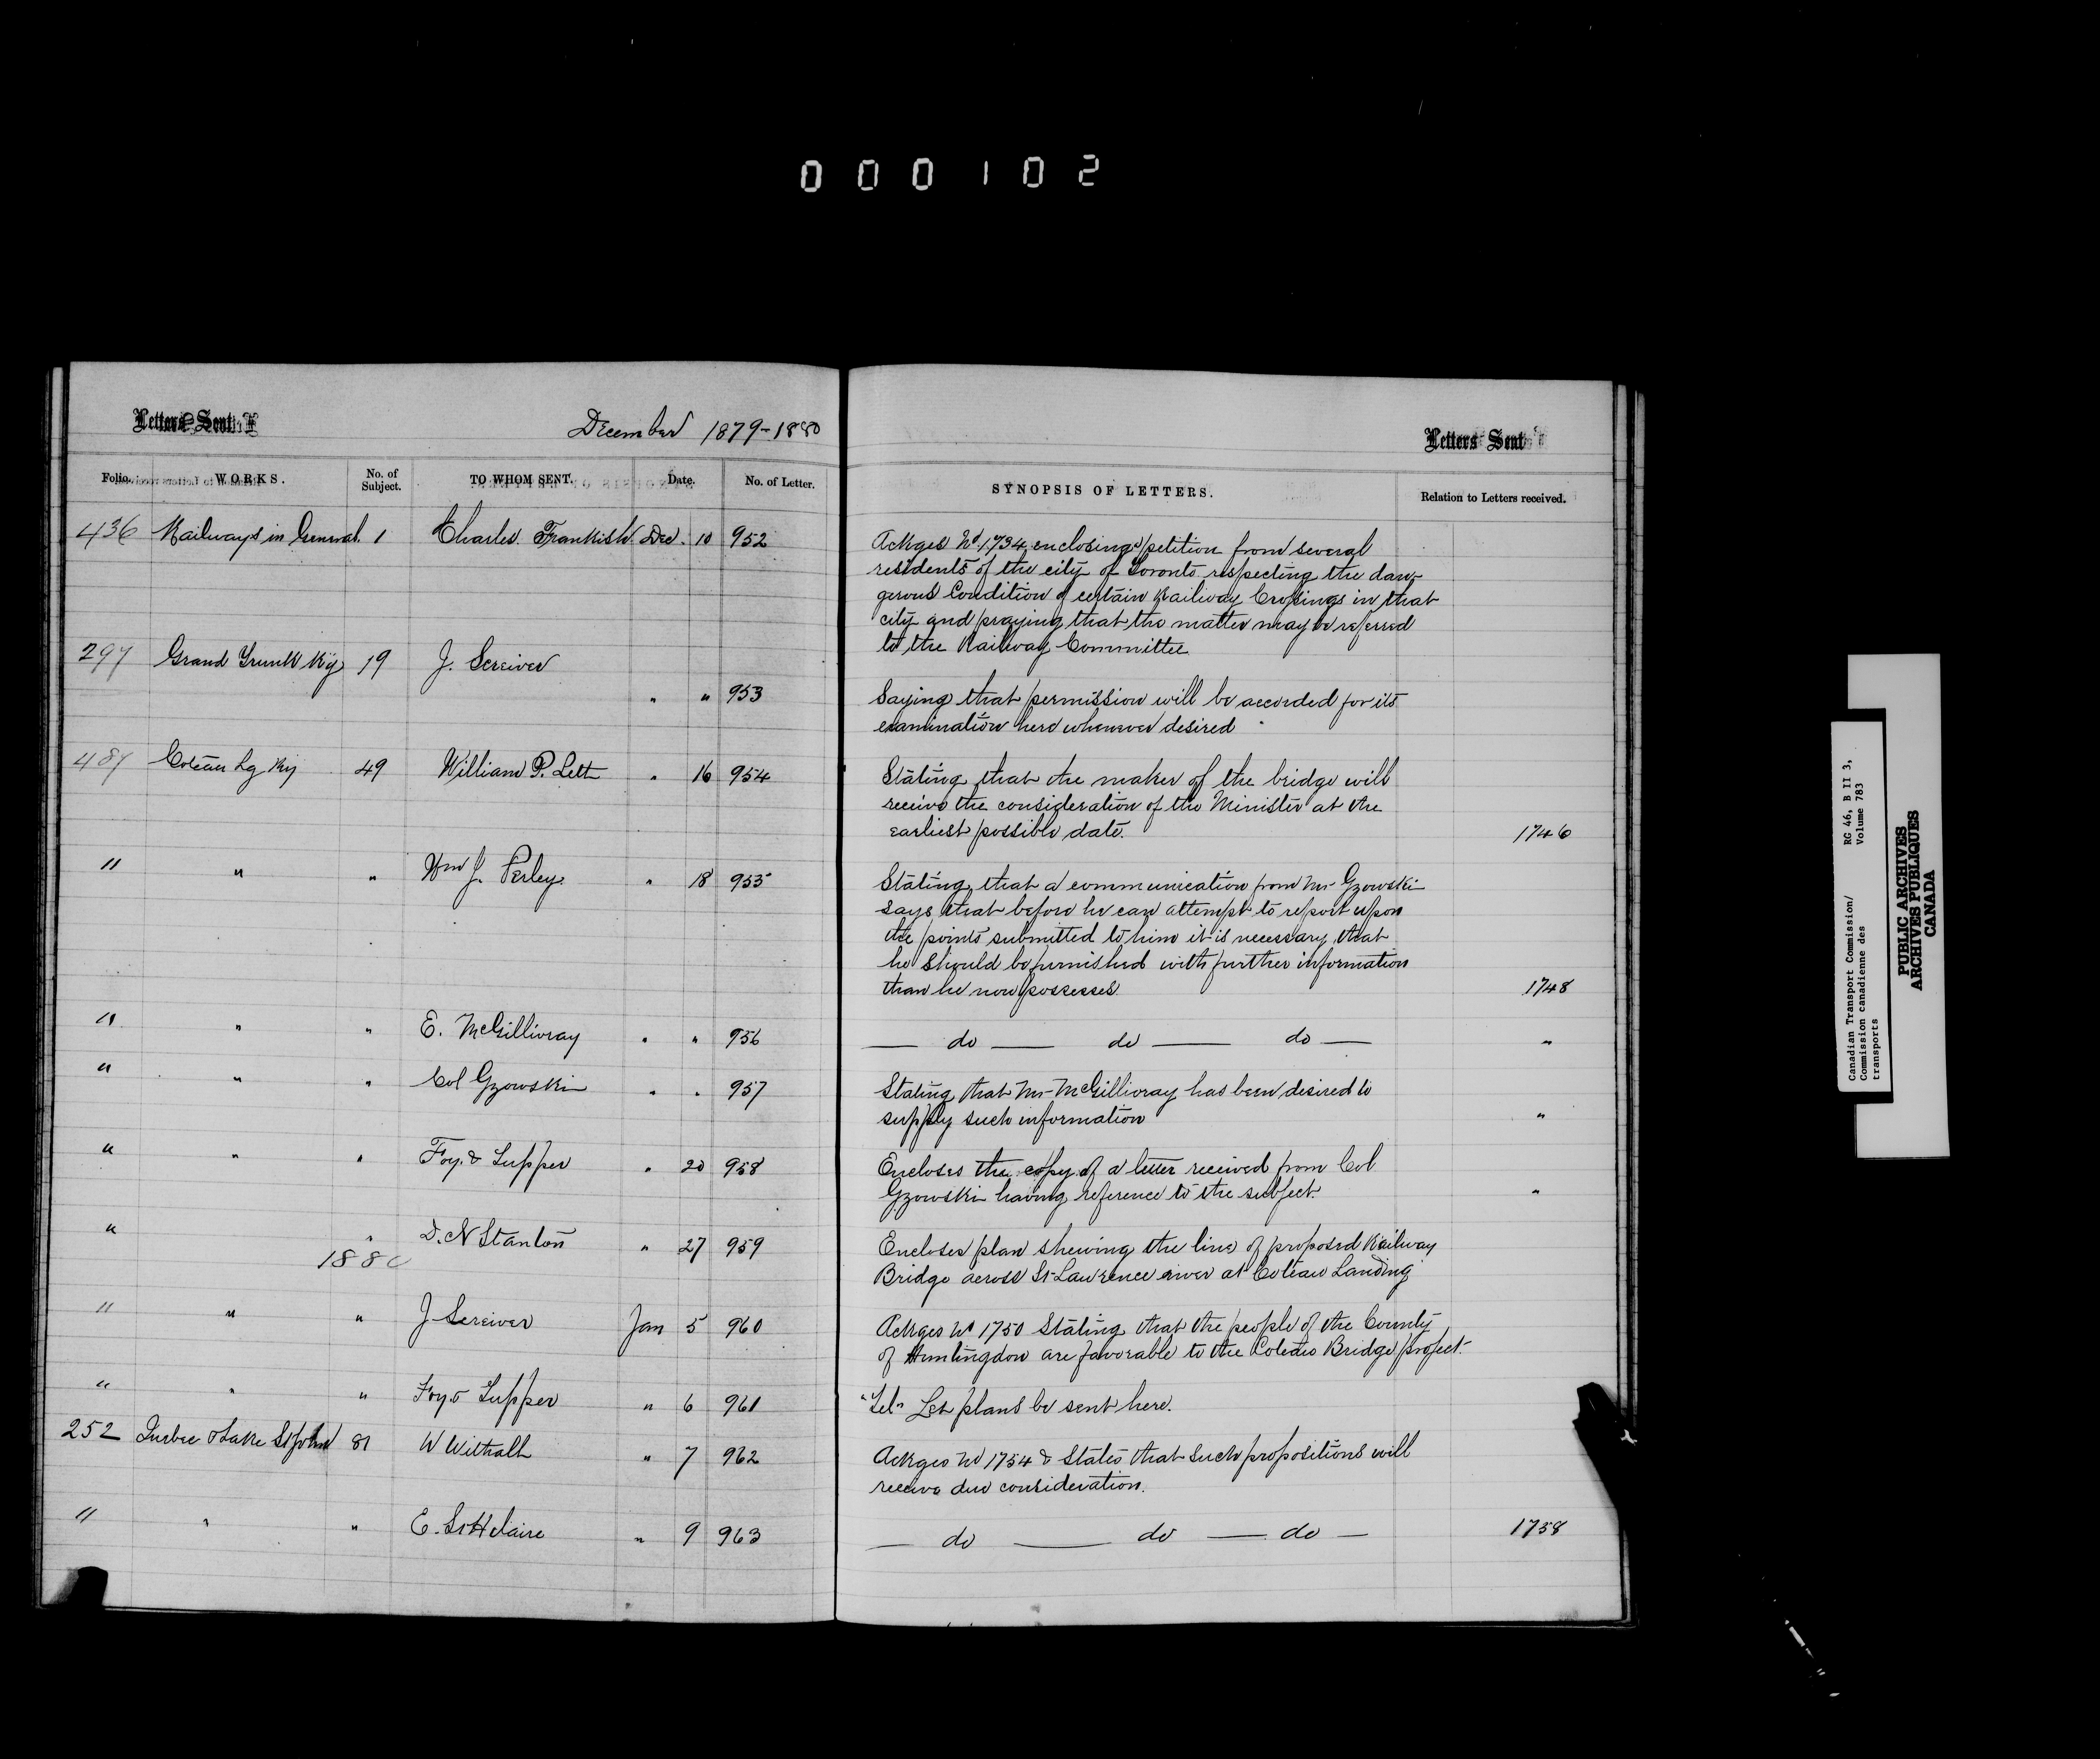 000102
Letters Sent
December 1879-1880
Letters Sent
Folio. WORKS. No. of Subject. TO WHOM SENT. Date. No. of Letter. SYNOPSIS OF LETTERS. Relation to Letters received.
436 Railways in General. 1 Charles Frankish Dec. 10 952 Ackges No 1734 enclosing petition from several
residents of the city of Toronto respecting the dan-
gerous Condition of certain Railway Crossings in that
city and praying that the matter may be referred
to the Railway Committee
297 Grand Trunk Ry 19 J. Screiver
" " 953 Saying that permission will be accorded for its
examination here whenever desired
487 Coteau Lg Ry 49 William P. Lett " 16 954 Stating that the maker of the bridge will
receive the consideration of the Minister at the
earliest possible date. 1746
" " " Wm J. Perley " 18 955 Stating that a communication from Mr Gzowski
says that before he can attempt to report upon
the points submitted to him it is necessary that
he should be furnished with further information
than he now possesses 1748
" " " E. McGillivray " " 956 — do — do — do — "
" " " Col Gzowski " " 957 Stating that Mr McGillivray has been desired to
supply such information "
" " " Foy & Tupper " 20 958 Encloses the copy of a letter received from Col
Gzowski having reference to the subject. "
" " D. N Stanton " 27 959 Encloses plan shewing the line of proposed Railway
Bridge across St Lawrence river at Coteau Landing
1880
" " " J Screiver Jan 5 960 Ackges No 1750 Stating that the people of the County
of Huntingdon are favorable to the Coteau Bridge project.
" " " Foy & Tupper " 6 961 "Tel" Let plans be sent here.
252 Quebec & Lake St John 81 W Withall " 7 962 Ackges No 1754 & States that such propositions will
receive due consideration.
" " " E. St Helaire " 9 963 — do — do — do — 1758
Canadian Transport Commission/ RG 46, B II 3,
Commission canadienne des Volume 783
transports
PUBLIC ARCHIVES
ARCHIVES PUBLIQUES
CANADA